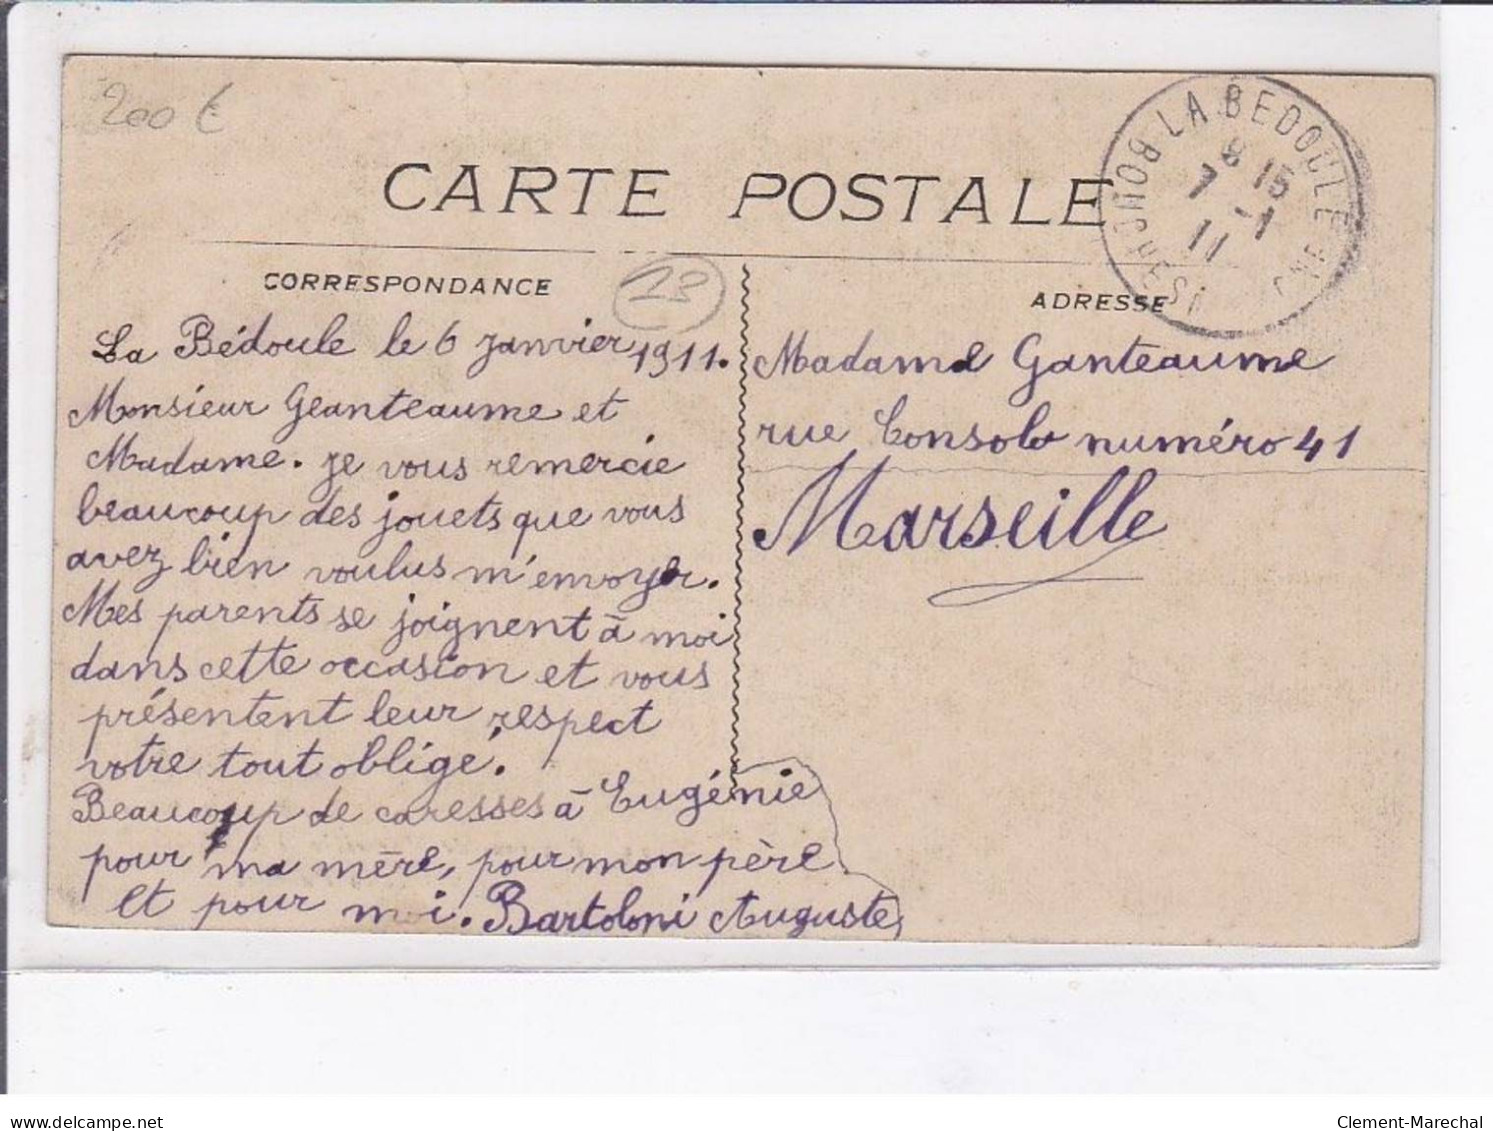 200 €
CARTE POSTALE
LA BEDOULE
BOUCHES
8 15
7 -1
11
CORRESPONDANCE
13
ADRESSE
La Bédoule le 6 janvier 1911.
Monsieur Geanteaume et
Madame. je vous remercie
beaucoup des jouets que vous
avez bien voulus m'envoyer.
Mes parents se joignent à moi
dans cette occasion et vous
présentent leur respect
votre tout obligé.
Beaucoup de caresses à Eugénie
pour ma mère, pour mon père
et pour moi. Bartoloni Auguste,
Madame Ganteaume
rue Consola numéro 41
Marseille
delcampe.net
Clement-Marechal